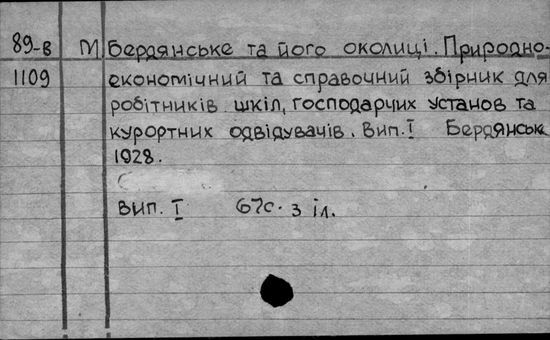 89-в М. Бердянське та його околиці. Природно-
1109 економічний та справочний збірник для
робітників шкіл, господарчих установ та
курортних одвідувачів. Вип. I Бердянськ
1928.
Вип. I 67с. з іл.